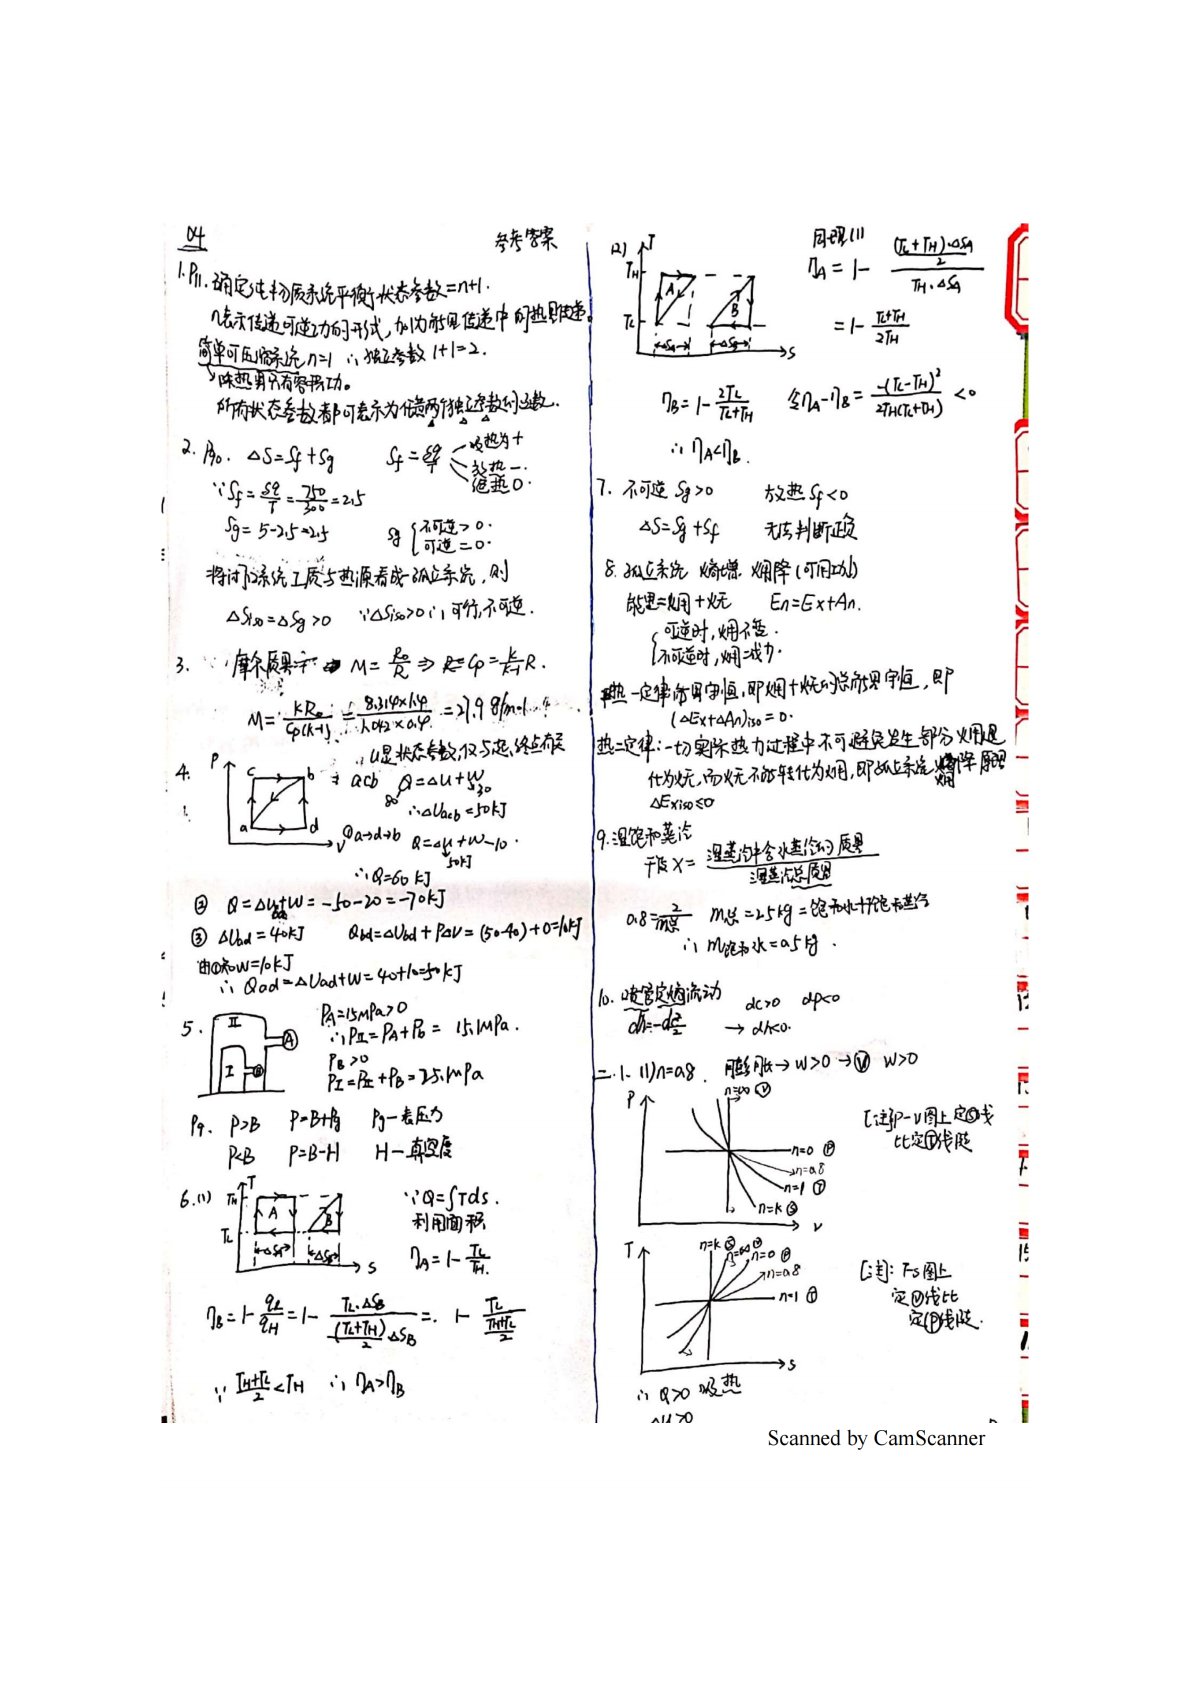 04
参考答案
1. P11. 确定纯物质系统平衡状态参数=n+1.
n表示传递可逆功的形式, 加1为能量传递中的热量传递。
简单可压缩系统 n=1 ∴独立参数 1+1=2.
除热量外只有容积功。
所有状态参数都可表示为任意两个独立参数的函数.
2. ΔS=Sf+Sg Sf=δq/T 吸热为+ 放热- 绝热0.
∵Sf=δq/T=750/300=2.5
Sg=5-2.5=2.5 Sg{不可逆>0. 可逆=0.
将讨论系统工质与热源看成孤立系统, 则
ΔSiso=ΔSg>0 ∵ΔSiso>0 ∴可行, 不可逆.
3. 摩尔质量 M=R0/R ⇒ Cp=k/(k-1)R.
M=kR0/Cp(k-1)=8.314×1.4/1.042×0.4=27.9g/mol
u是状态参数, 仅与起, 终点有关
4. P c b a d V
acb Q=ΔU+W
80 30
∴ΔUacb=50kJ
Qa→d→b Q=ΔU+W-10.
50kJ
∴Q=60kJ
② Q=ΔU+W=-50-20=-70kJ
③ ΔUad=40kJ Qbd=ΔUbd+PΔV=(50-40)+0=10kJ
由①知W=10kJ
∴Qad=ΔUad+W=40+10=50kJ
5. II I A B
PA=15MPa>0
∴PII=PA+Pb=15.1MPa.
PB>0
PI=PII+PB=25.1MPa
P9. P>B P=B+Pg Pg—表压力
P<B P=B-H H—真空度
6.(1) T TH TL A B ΔSA ΔSB S
∵Q=∫Tds.
利用面积
ηA=1-TL/TH.
ηB=1-qL/qH=1-TL·ΔSB/((TL+TH)/2·ΔSB)=1-TL/((TH+TL)/2)
∵(TH+TL)/2<TH ∴ηA>ηB
(2) T TH TL A B ΔSA ΔSB S
同理(1) ηA=1-((TL+TH)·ΔSA/2)/(TH·ΔSA)
=1-(TL+TH)/2TH
ηB=1-2TL/(TL+TH) 令ηA-ηB=-(TL-TH)²/2TH(TL+TH)<0
∴ηA<ηB.
7. 不可逆 Sg>0 放热 Sf<0
ΔS=Sg+Sf 无法判断正负
8. 孤立系统 熵增 㶲降(可用功↓)
能量=㶲+㶲 En=Ex+An.
{可逆时, 㶲不变.
不可逆时, 㶲减少.
热一定律能量守恒, 即㶲+㶲的总能量守恒, 即
(ΔEx+ΔAn)iso=0.
热二定律: 一切实际热力过程中不可避免发生部分㶲退
化为㶲, 而㶲不能转化为㶲, 即孤立系统㶲降原理
ΔExiso≤0
9. 湿饱和蒸汽
干度X=湿蒸汽中含水蒸汽的质量/湿蒸汽总质量
0.8=2/m总 m总=2.5kg=饱和水+饱和蒸汽
∴m饱和水=0.5kg.
10. 喷管定熵流动 dc>0 dp<0
dh=-dc²/2 → dh<0.
二.1.(1)n=0.8. 膨胀→W>0→Ⓥ W>0
P n=∞ Ⓥ n=0 Ⓟ n=0.8 n=1 Ⓣ n=k Ⓢ V
[注]P-V图上定Ⓢ线
比定Ⓣ线陡
T n=k Ⓢ n=∞ Ⓥ n=0 Ⓟ n=0.8 n=1 Ⓣ S
[注]: T-S图上
定Ⓥ线比
定Ⓟ线陡.
∴Q>0 吸热
ΔU>0
Scanned by CamScanner